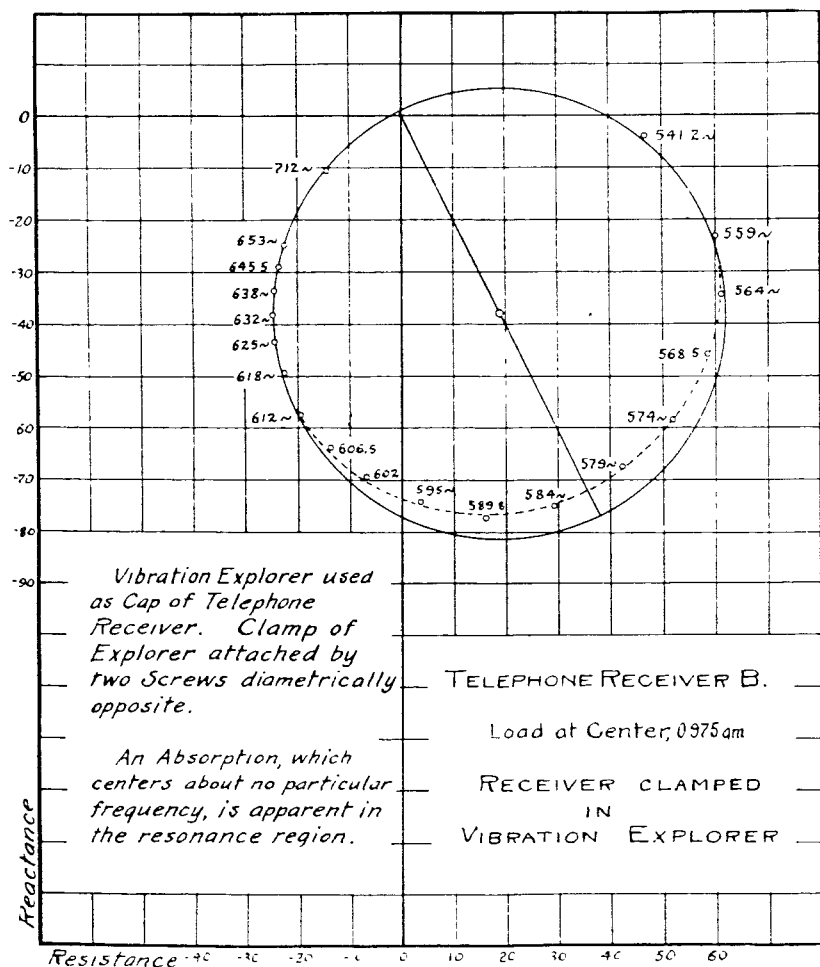 0
-10
-20
-30
-40
-50
60
-70
-80
-90
712~
653~
645.5
638~
632~
625~
618~
612~
606.5
602
595~
589 8
584~
579~
574~
568 5
564~
559~
541 2~
Vibration Explorer used
as Cap of Telephone
Receiver. Clamp of
Explorer attached by
two Screws diametrically
opposite.
An Absorption, which
centers about no particular
frequency, is apparent in
the resonance region.
TELEPHONE RECEIVER B.
Load at Center, 0975 gm
RECEIVER CLAMPED
IN
VIBRATION EXPLORER
Reactance
Resistance -40 -30 -20 -10 0 10 20 30 40 50 60